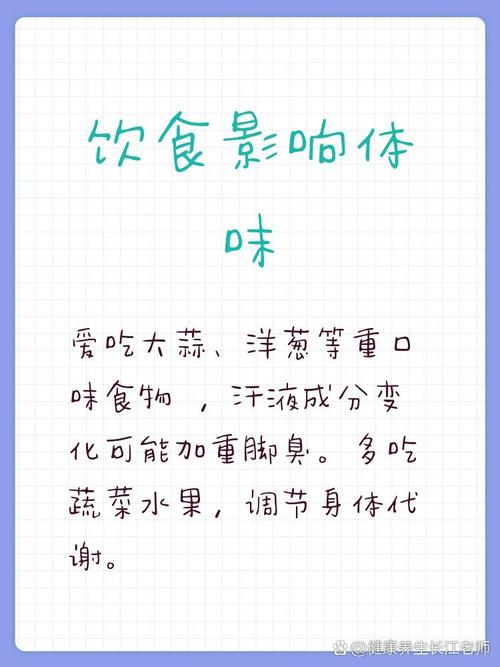 饮食影响体
味
爱吃大蒜、洋葱等重口
味食物 ，汗液成分变
化可能加重脚臭。多吃
蔬菜水果，调节身体代
谢。
@健康养生长江老师